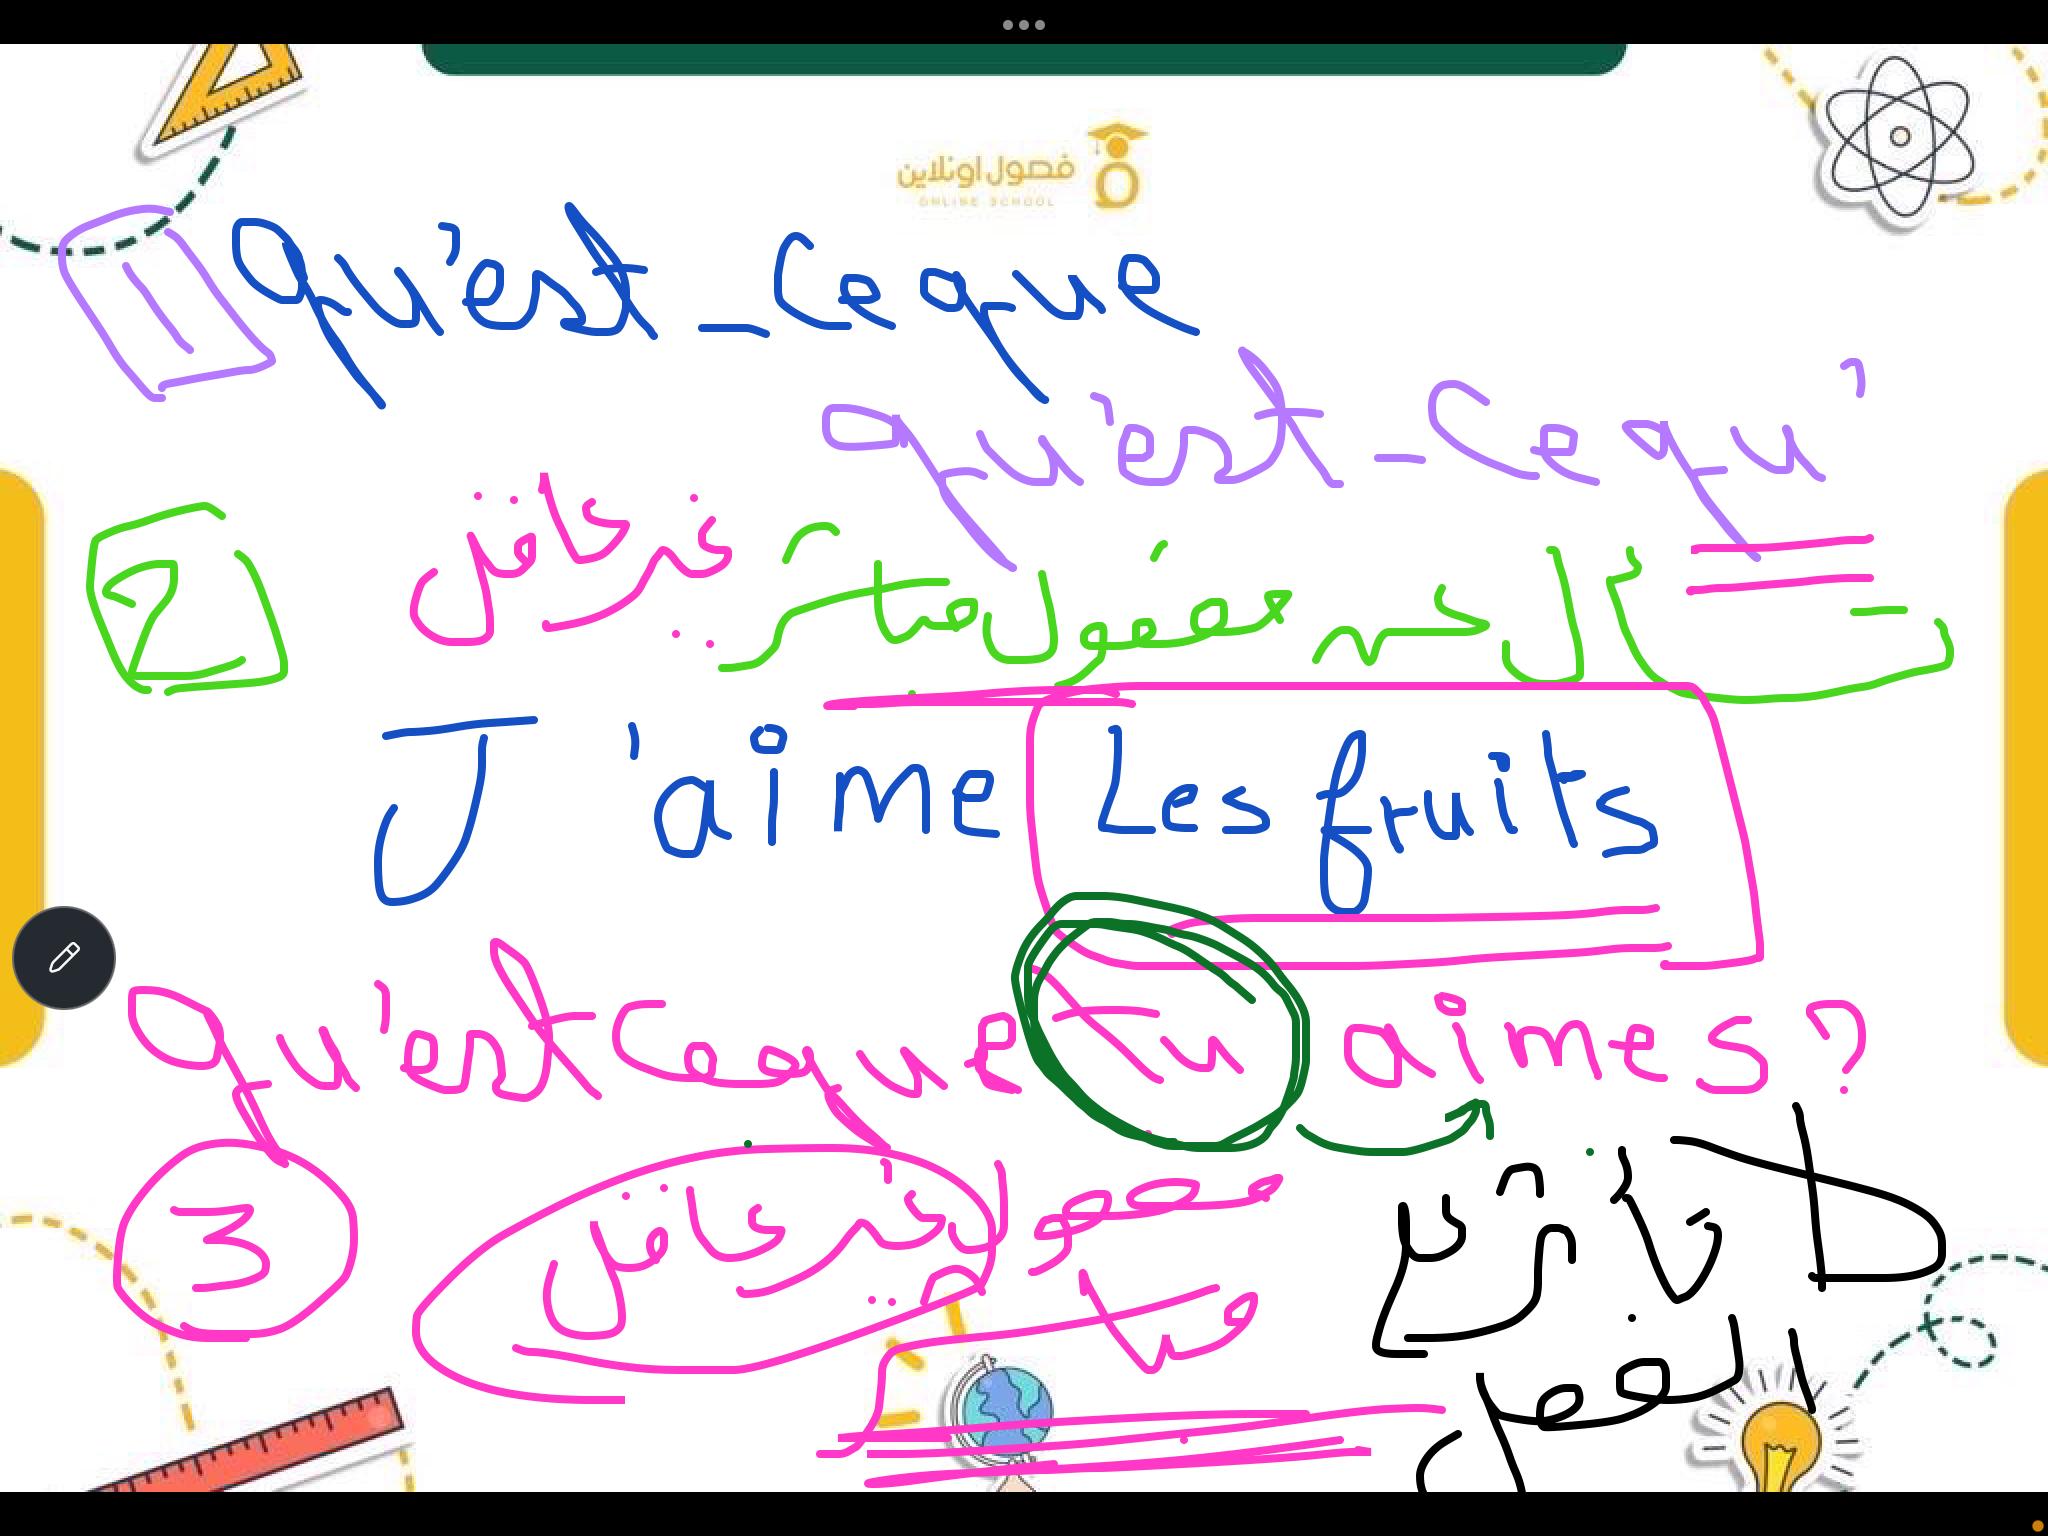 فصول اونلاين
ONLINE SCHOOL
1 Qu'est_Ceque
Qu'est_Cequ'
2 تسأل عن مفعول مباشر غير عاقل
J'aime Les fruits
Qu'est Ceque Tu aimes?
3 مفعول غير عاقل
مباشر
الفعل